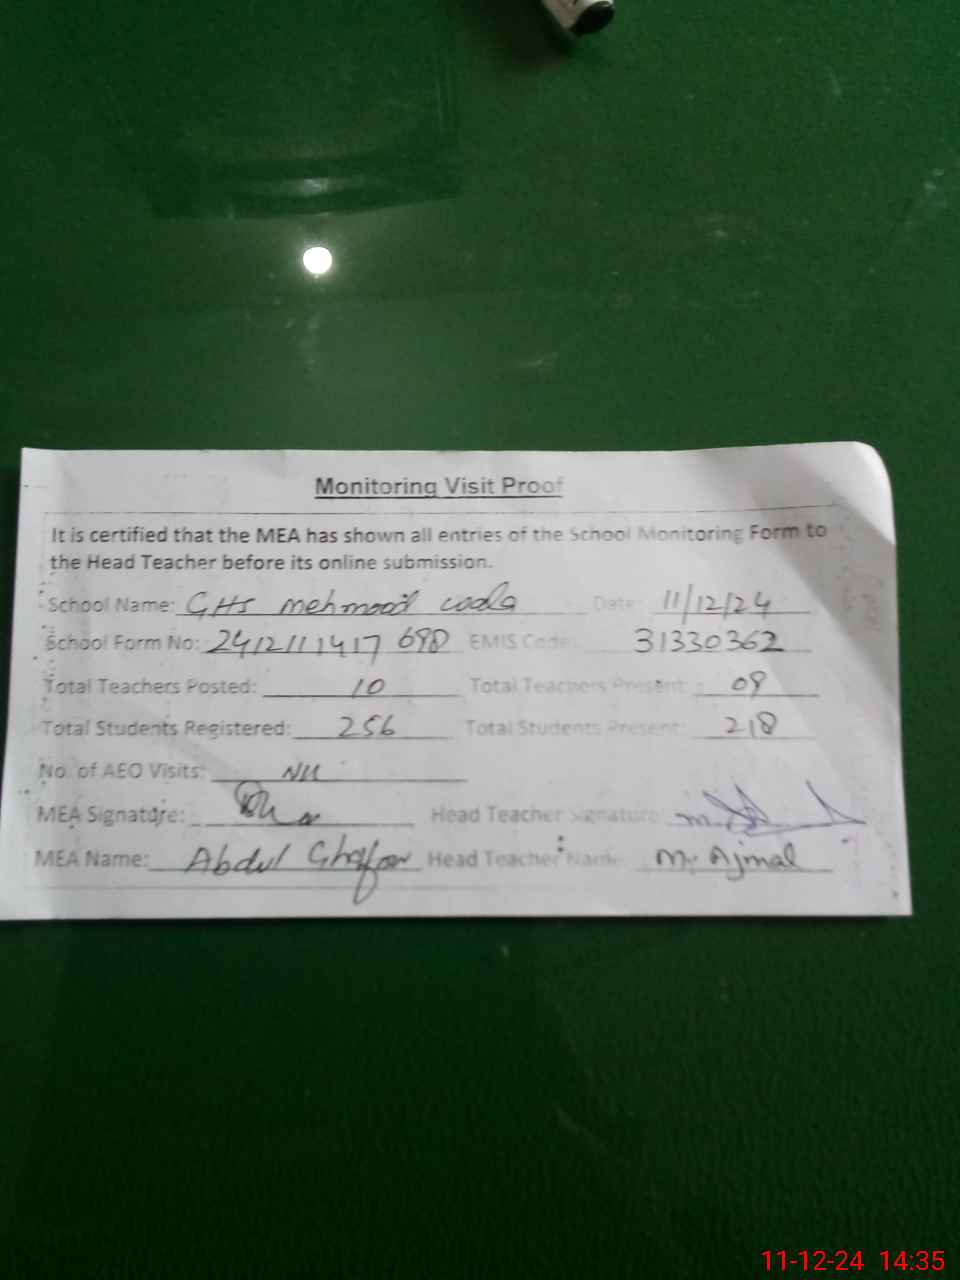 Monitoring Visit Proof
It is certified that the MEA has shown all entries of the School Monitoring Form to
the Head Teacher before its online submission.
School Name: GHS mehmood Date: 11/12/24
School Form No: 2412111417 698 EMIS Code: 31330362
Total Teachers Posted: 10 Total Teachers Present: 09
Total Students Registered: 256 Total Students Present: 218
No. of AEO Visits: Nil
MEA Signature: Head Teacher Signature:
MEA Name: Abdul Ghafar Head Teacher Name M. Ajmal
11-12-24 14:35